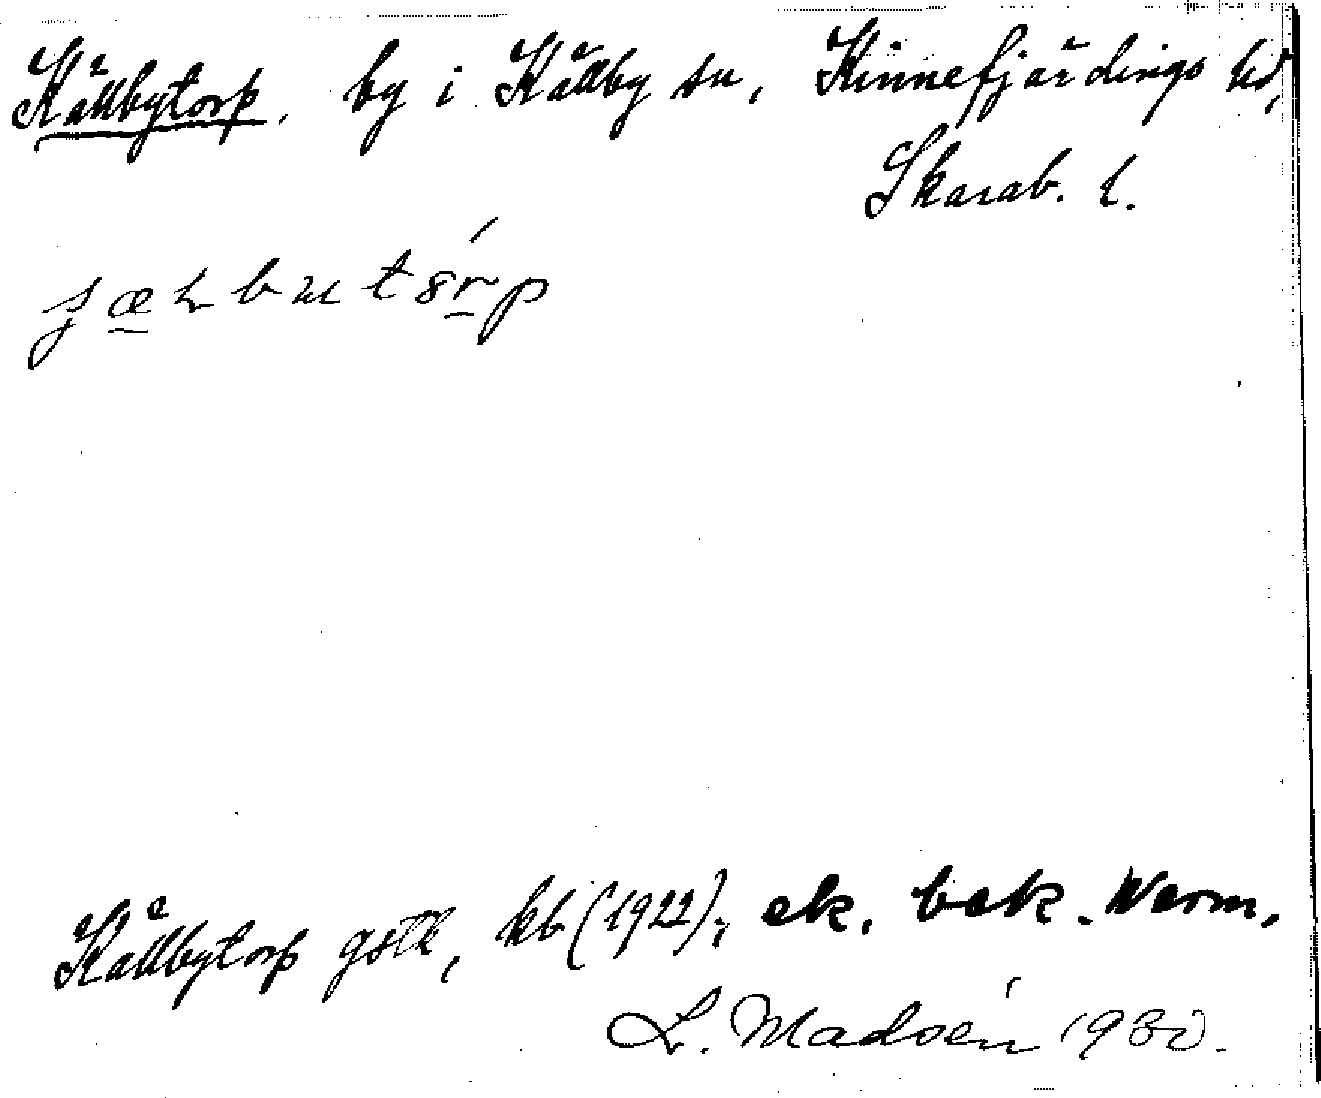 Källbytorp, by i Källby sn, Kinnefjärdings hd,
Skarab. l.
Källbytorp gstk, kb (1922); ek. bok. Werm.
L. Madsén 1930.